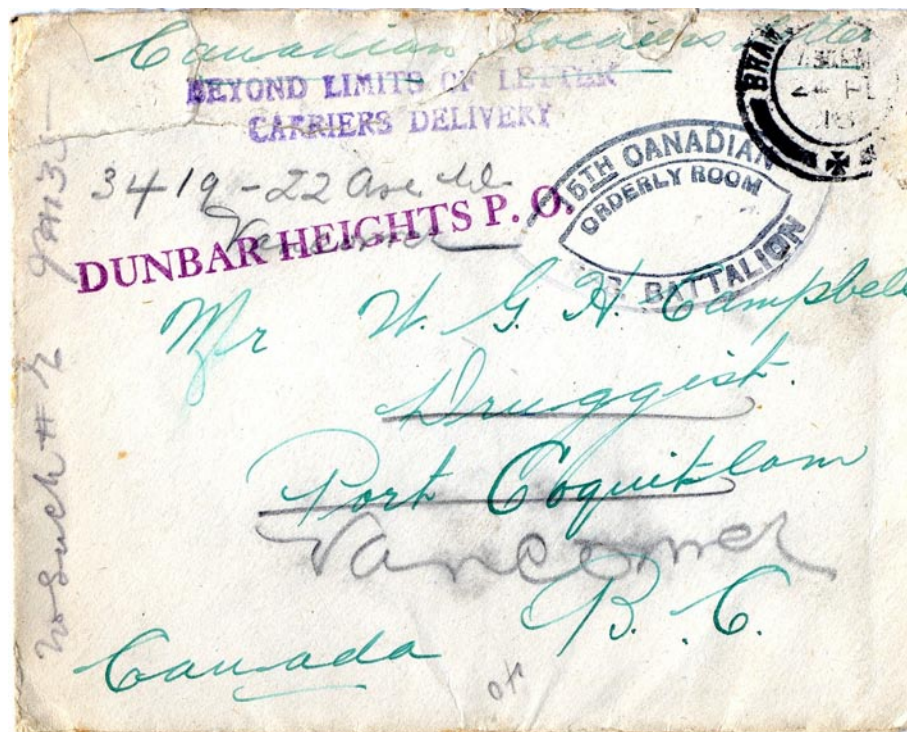 Canadian Soldiers Letter
BEYOND LIMITS OF LETTER
CARRIERS DELIVERY
3419-22 Ave. W.
Vancouver
DUNBAR HEIGHTS P. O.
15TH CANADIAN
ORDERLY ROOM
BATTALION
BRAM
Mr W. G. H. Campbell
Druggist.
Port Coquitlam
Vancouver
B. C.
Canada
No Such #